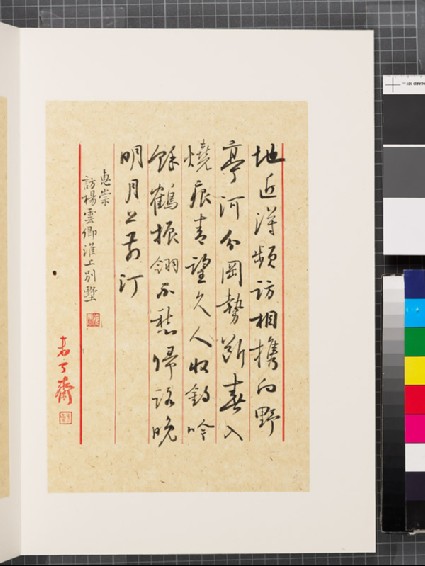 地近得頻訪相攜向野
亭河分岡勢斷春入
燒痕青望久人收釣吟
餘鶴振翎不愁歸路晚
明月上前汀
惠崇
訪楊雲卿淮上別墅